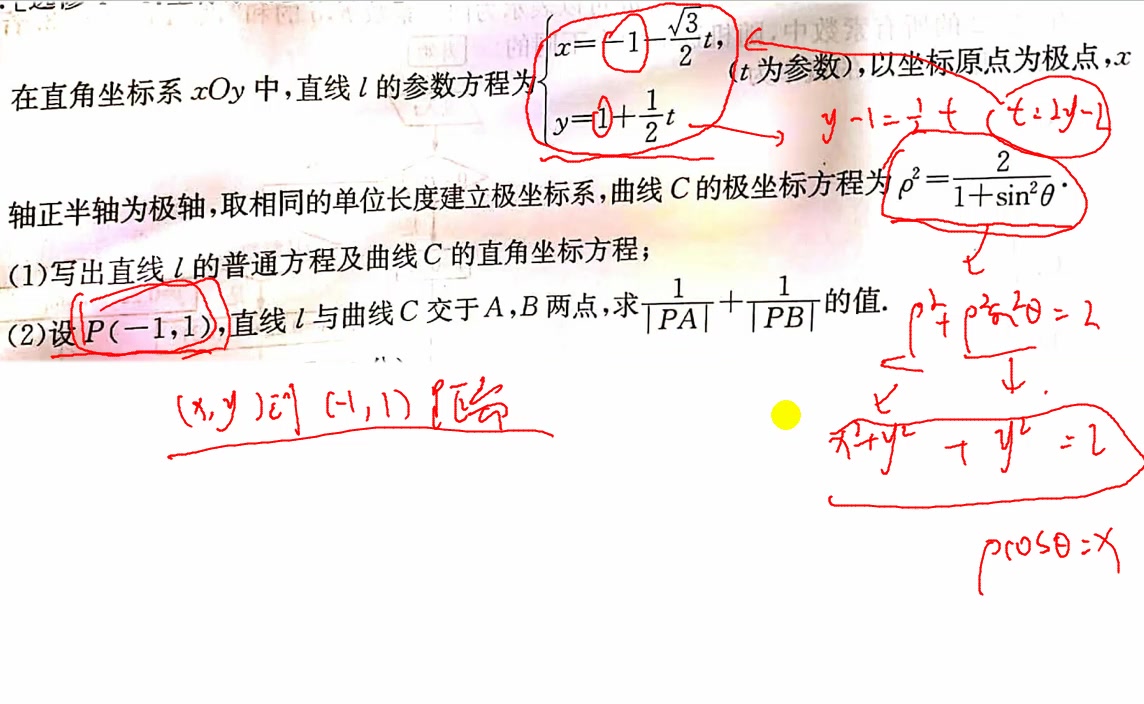 在直角坐标系 xOy 中,直线 l 的参数方程为{x=-1-√3/2 t, y=1+1/2 t (t 为参数),以坐标原点为极点,x
y-1=1/2 t
t=2y-2
轴正半轴为极轴,取相同的单位长度建立极坐标系,曲线 C 的极坐标方程为 ρ²=2/(1+sin²θ).
(1)写出直线 l 的普通方程及曲线 C 的直角坐标方程;
(2)设 P(-1,1),直线 l 与曲线 C 交于 A,B 两点,求 1/|PA|+1/|PB| 的值.
ρ²+ρ²sin²θ=2
(x,y)到(-1,1)距离
x²+y²+y²=2
ρcosθ=x